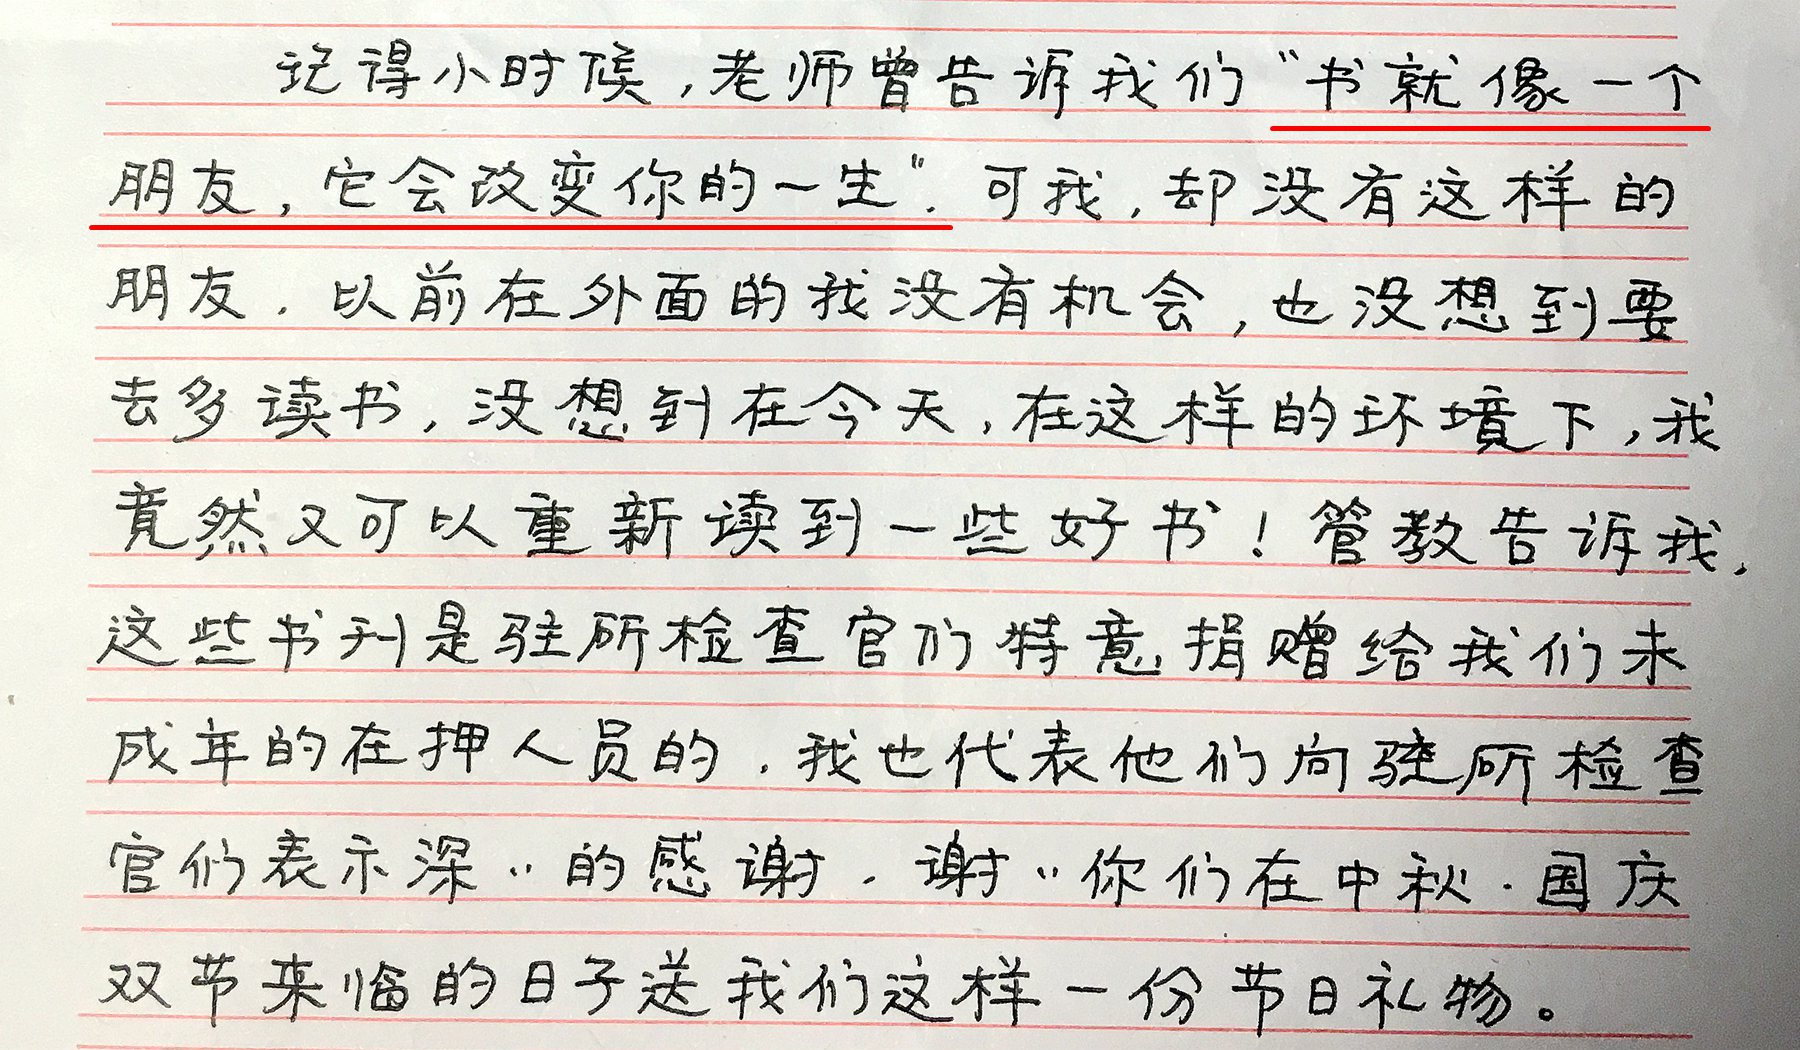 记得小时候,老师曾告诉我们“书就像一个
朋友,它会改变你的一生”.可我,却没有这样的
朋友.以前在外面的我没有机会,也没想到要
去多读书,没想到在今天,在这样的环境下,我
竟然又可以重新读到一些好书!管教告诉我,
这些书刊是驻所检查官们特意捐赠给我们未
成年的在押人员的.我也代表他们向驻所检查
官们表示深〃的感谢.谢〃你们在中秋·国庆
双节来临的日子送我们这样一份节日礼物。